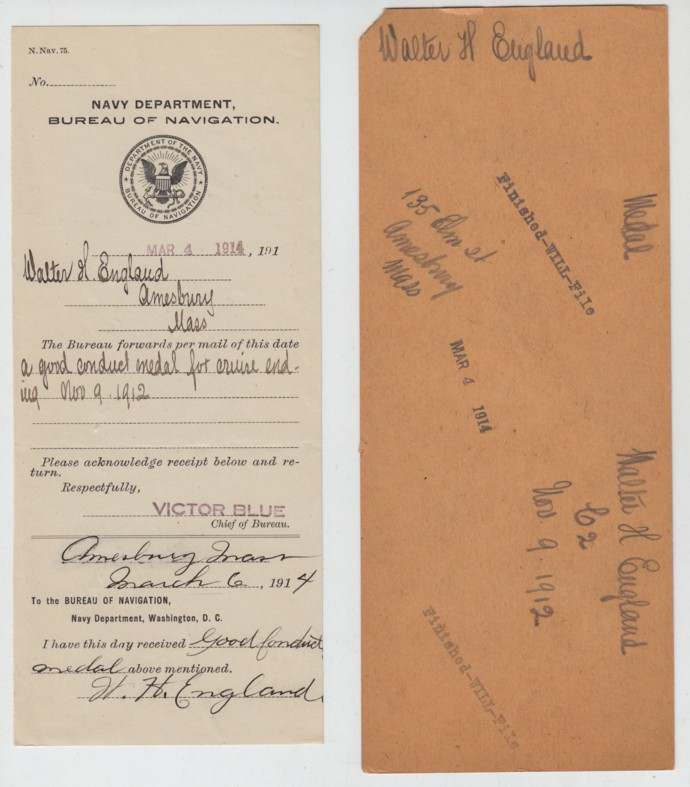 N. Nav. 75.
No.
NAVY DEPARTMENT,
BUREAU OF NAVIGATION.
DEPARTMENT OF THE NAVY
BUREAU OF NAVIGATION
MAR 4 1914, 191
Walter H. England
Amesbury
Mass
The Bureau forwards per mail of this date
a good conduct medal for cruise end-
ing Nov 9. 1912
Please acknowledge receipt below and re-
turn.
Respectfully,
VICTOR BLUE
Chief of Bureau.
Amesbury Mass
March 6, 1914
To the BUREAU OF NAVIGATION,
Navy Department, Washington, D. C.
I have this day received Good Conduct
medal above mentioned.
W. H. England
Walter H England
Medal
Finished-WILL-File
135 Elm st
Amesbury
Mass
MAR 4 1914
Walter H England
C 2
Nov 9. 1912
Finished-WILL-File